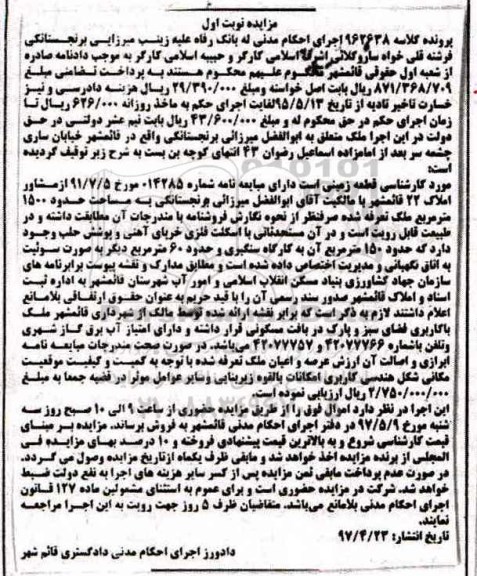 مزایده نوبت اول
پرونده کلاسه ۹۶۲۶۳۸ اجرای احکام مدنی له بانک رفاه علیه زینب میرزایی برنجستانکی
فرشته قلی خواه ساروکلائی اشرف اسلامی کارگر و حبیبه اسلامی کارگر به موجب دادنامه صادره
از شعبه اول حقوقی قائمشهر محکوم علیهم محکوم هستند به پرداخت تضامنی مبلغ
۸۷۱/۳۶۸/۷۰۹ ریال بابت اصل خواسته ومبلغ ۲۹/۳۹۰/۰۰۰ ریال هزینه دادرسی و نیز
خسارت تاخیر تادیه از تاریخ ۹۵/۵/۱۳ لغایت اجرای حکم به ماخذ روزانه ۶۲۶/۰۰۰ ریال تا
زمان اجرای حکم در حق محکوم له و مبلغ ۴۳/۶۰۰/۰۰۰ ریال بابت نیم عشر دولتی در حق
دولت در این اجرا ملک متعلق به ابوالفضل میرزائی برنجستانکی واقع در قائمشهر خیابان ساری
چشمه سر بعد از امامزاده اسماعیل رضوان ۴۳ انتهای کوچه بن بست به شرح زیر توقیف گردیده
است:
مورد کارشناسی قطعه زمینی است دارای مبایعه نامه شماره ۰۱۴۲۸۵ مورخ ۹۱/۷/۵ از مشاور
املاک ۲۲ قائمشهر با مالکیت آقای ابوالفضل میرزائی برنجستانکی به مساحت حدود ۱۵۰۰
مترمربع ملک تعرفه شده صرفنظر از نحوه نگارش فروشنامه با مندرجات آن مطابقت داشته و در
طبیعت قابل رویت است و در آن مستحدثاتی با اسکلت فلزی خرپای آهنی و پوشش حلب وجود
دارد که حدود ۱۵۰ مترمربع آن به کارگاه سنگبری و حدود ۶۰ مترمربع دیگر آن بصورت سوئیت
به اتاق نگهبانی و مدیریت اختصاص داده شده است و مطابق مدارک و نقشه پیوست برابر نامه های
سازمان جهاد کشاورزی بنیاد مسکن انقلاب اسلامی و امور آب شهرستان قائمشهر به اداره ثبت
اسناد و املاک قائمشهر صدور سند رسمی آن را با قید حریم به عنوان حقوق ارتفاقی بلامانع
اعلام داشتند لازم به ذکر است که برابر نقشه ارائه شده توسط مالک از شهرداری قائمشهر ملک
باکاربری فضای سبز و پارک در بافت مسکونی قرار داشته و دارای امتیاز آب برق گاز شهری
وتلفن باشماره ۴۲۰۷۷۷۶۶ و ۴۲۰۷۷۷۵۷ می‌باشد. در صورت صحت مندرجات مبایعه نامه
ابرازی و اصالت آن ارزش عرصه و اعیان ملک تعرفه شده با توجه به کمیت و کیفیت موقعیت
مکانی شکل هندسی کاربری امکانات بالقوه زیربنایی وسایر عوامل موثر در قضیه جمعا به مبلغ
۲/۷۵۰/۰۰۰/۰۰۰ ریال ارزیابی نموده است.
این اجرا در نظر دارد اموال فوق را از طریق مزایده حضوری از ساعت ۹ الی ۱۰ صبح روز سه
شنبه مورخ ۹۷/۵/۹ در دفتر اجرای احکام مدنی قائمشهر به فروش برساند. مزایده بر مبنای
قیمت کارشناسی شروع و به بالاترین قیمت پیشنهادی فروخته و ۱۰ درصد بهای مزایده فی
المجلس از برنده مزایده اخذ خواهد شد و مابقی ظرف یکماه ازتاریخ مزایده وصول می گردد.
در صورت عدم پرداخت مابقی ثمن مزایده پس از کسر سایر هزینه های اجرا به نفع دولت ضبط
خواهد شد. شرکت در مزایده حضوری است و برای عموم به استثنای مشمولین ماده ۱۲۷ قانون
اجرای احکام مدنی بلامانع می‌باشد. متقاضیان ظرف ۵ روز جهت رویت به این اجرا مراجعه
نمایند.
تاریخ انتشار: ۹۷/۴/۲۳
دادورز اجرای احکام مدنی دادگستری قائم شهر